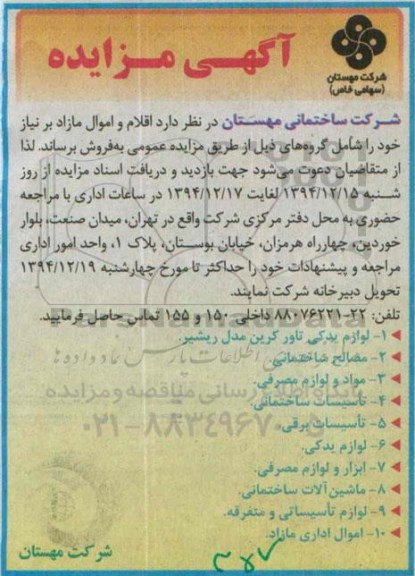 آگهی مزایده
شرکت مهستان
(سهامی خاص)
شرکت ساختمانی مهستان در نظر دارد اقلام و اموال مازاد بر نیاز
خود را شامل گروه‌های ذیل از طریق مزایده عمومی به‌فروش برساند. لذا
از متقاضیان دعوت می‌شود جهت بازدید و دریافت اسناد مزایده از روز
شنبه ۱۳۹۴/۱۲/۱۵ لغایت ۱۳۹۴/۱۲/۱۷ در ساعات اداری با مراجعه
حضوری به محل دفتر مرکزی شرکت واقع در تهران، میدان صنعت، بلوار
خوردین، چهارراه هرمزان، خیابان بوستان، پلاک ۱، واحد امور اداری
مراجعه و پیشنهادات خود را حداکثر تا مورخ چهارشنبه ۱۳۹۴/۱۲/۱۹
تحویل دبیرخانه شرکت نمایند.
تلفن: ۲۲-۸۸۰۷۶۲۲۱ داخلی ۱۵۰ و ۱۵۵ تماس حاصل فرمایید.
۱- لوازم یدکی تاور کرین مدل ریشیر.
۲- مصالح ساختمانی.
۳- مواد و لوازم مصرفی.
۴- تأسیسات ساختمانی.
۵- تأسیسات برقی.
۶- لوازم یدکی.
۷- ابزار و لوازم مصرفی.
۸- ماشین‌آلات ساختمانی.
۹- لوازم تأسیساتی و متفرقه.
۱۰- اموال اداری مازاد.
شرکت مهستان
پایگاه اطلاع رسانی مناقصه و مزایده